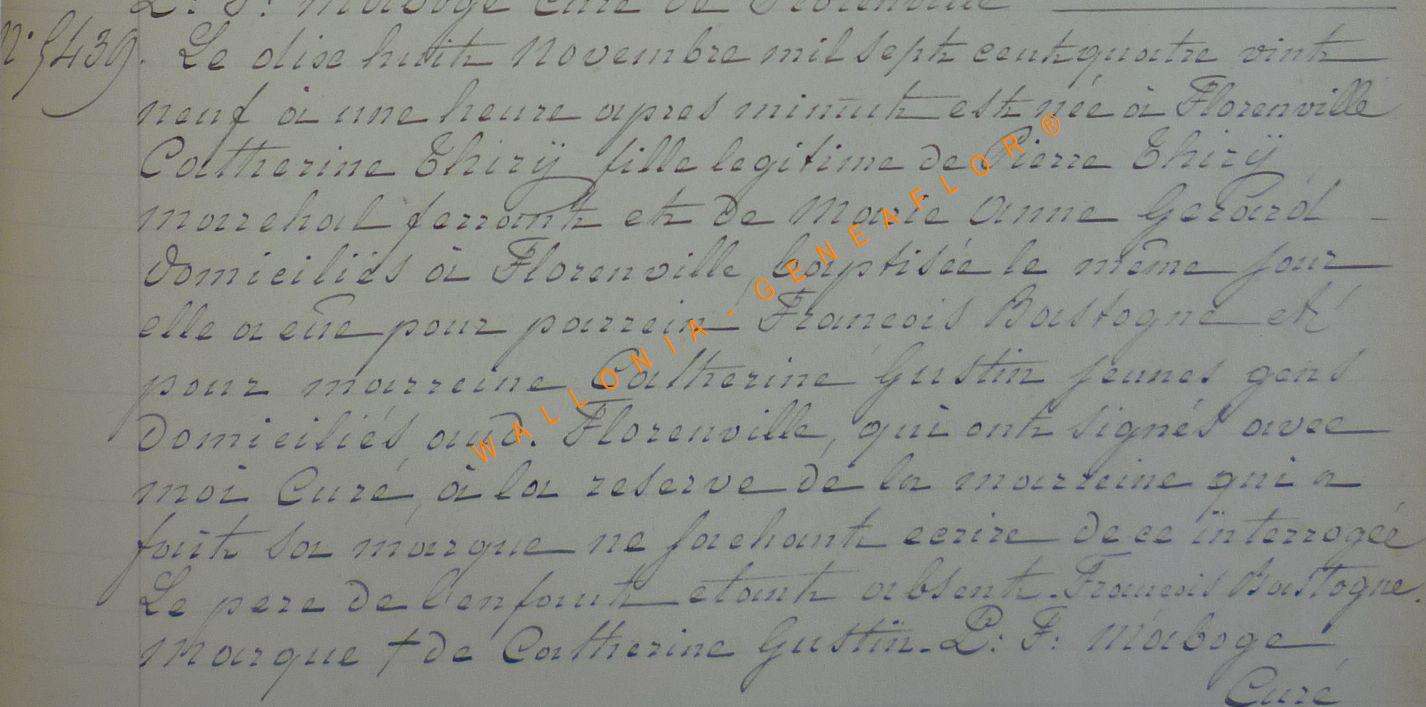 L: F: Maboge Curé de Florenville
N° 5439. Le dix huit Novembre mil sept cent quatre vint
neuf à une heure apres minuit est née à Florenville
Catherine Thirÿ fille legitime de Pierre Thirÿ
marrehal ferrant et de Marie Anne Gerard
domiciliés à Florenville, baptisée le même jour
elle a eûe pour parrein François Bastogne et
pour marreine Catherine Gustin jeunes gens
domiciliés aud. Florenville, qui ont signés avec
moi Curé, à la reserve de la marreine qui a
fait sa marque ne sachant ecrire de ce interrogée
Le pere de l'enfant etant absent. François Bastogne.
Marque † de Catherine Gustin. L: F: Maboge
Curé
WALLONIA - GENEAFLOR ®